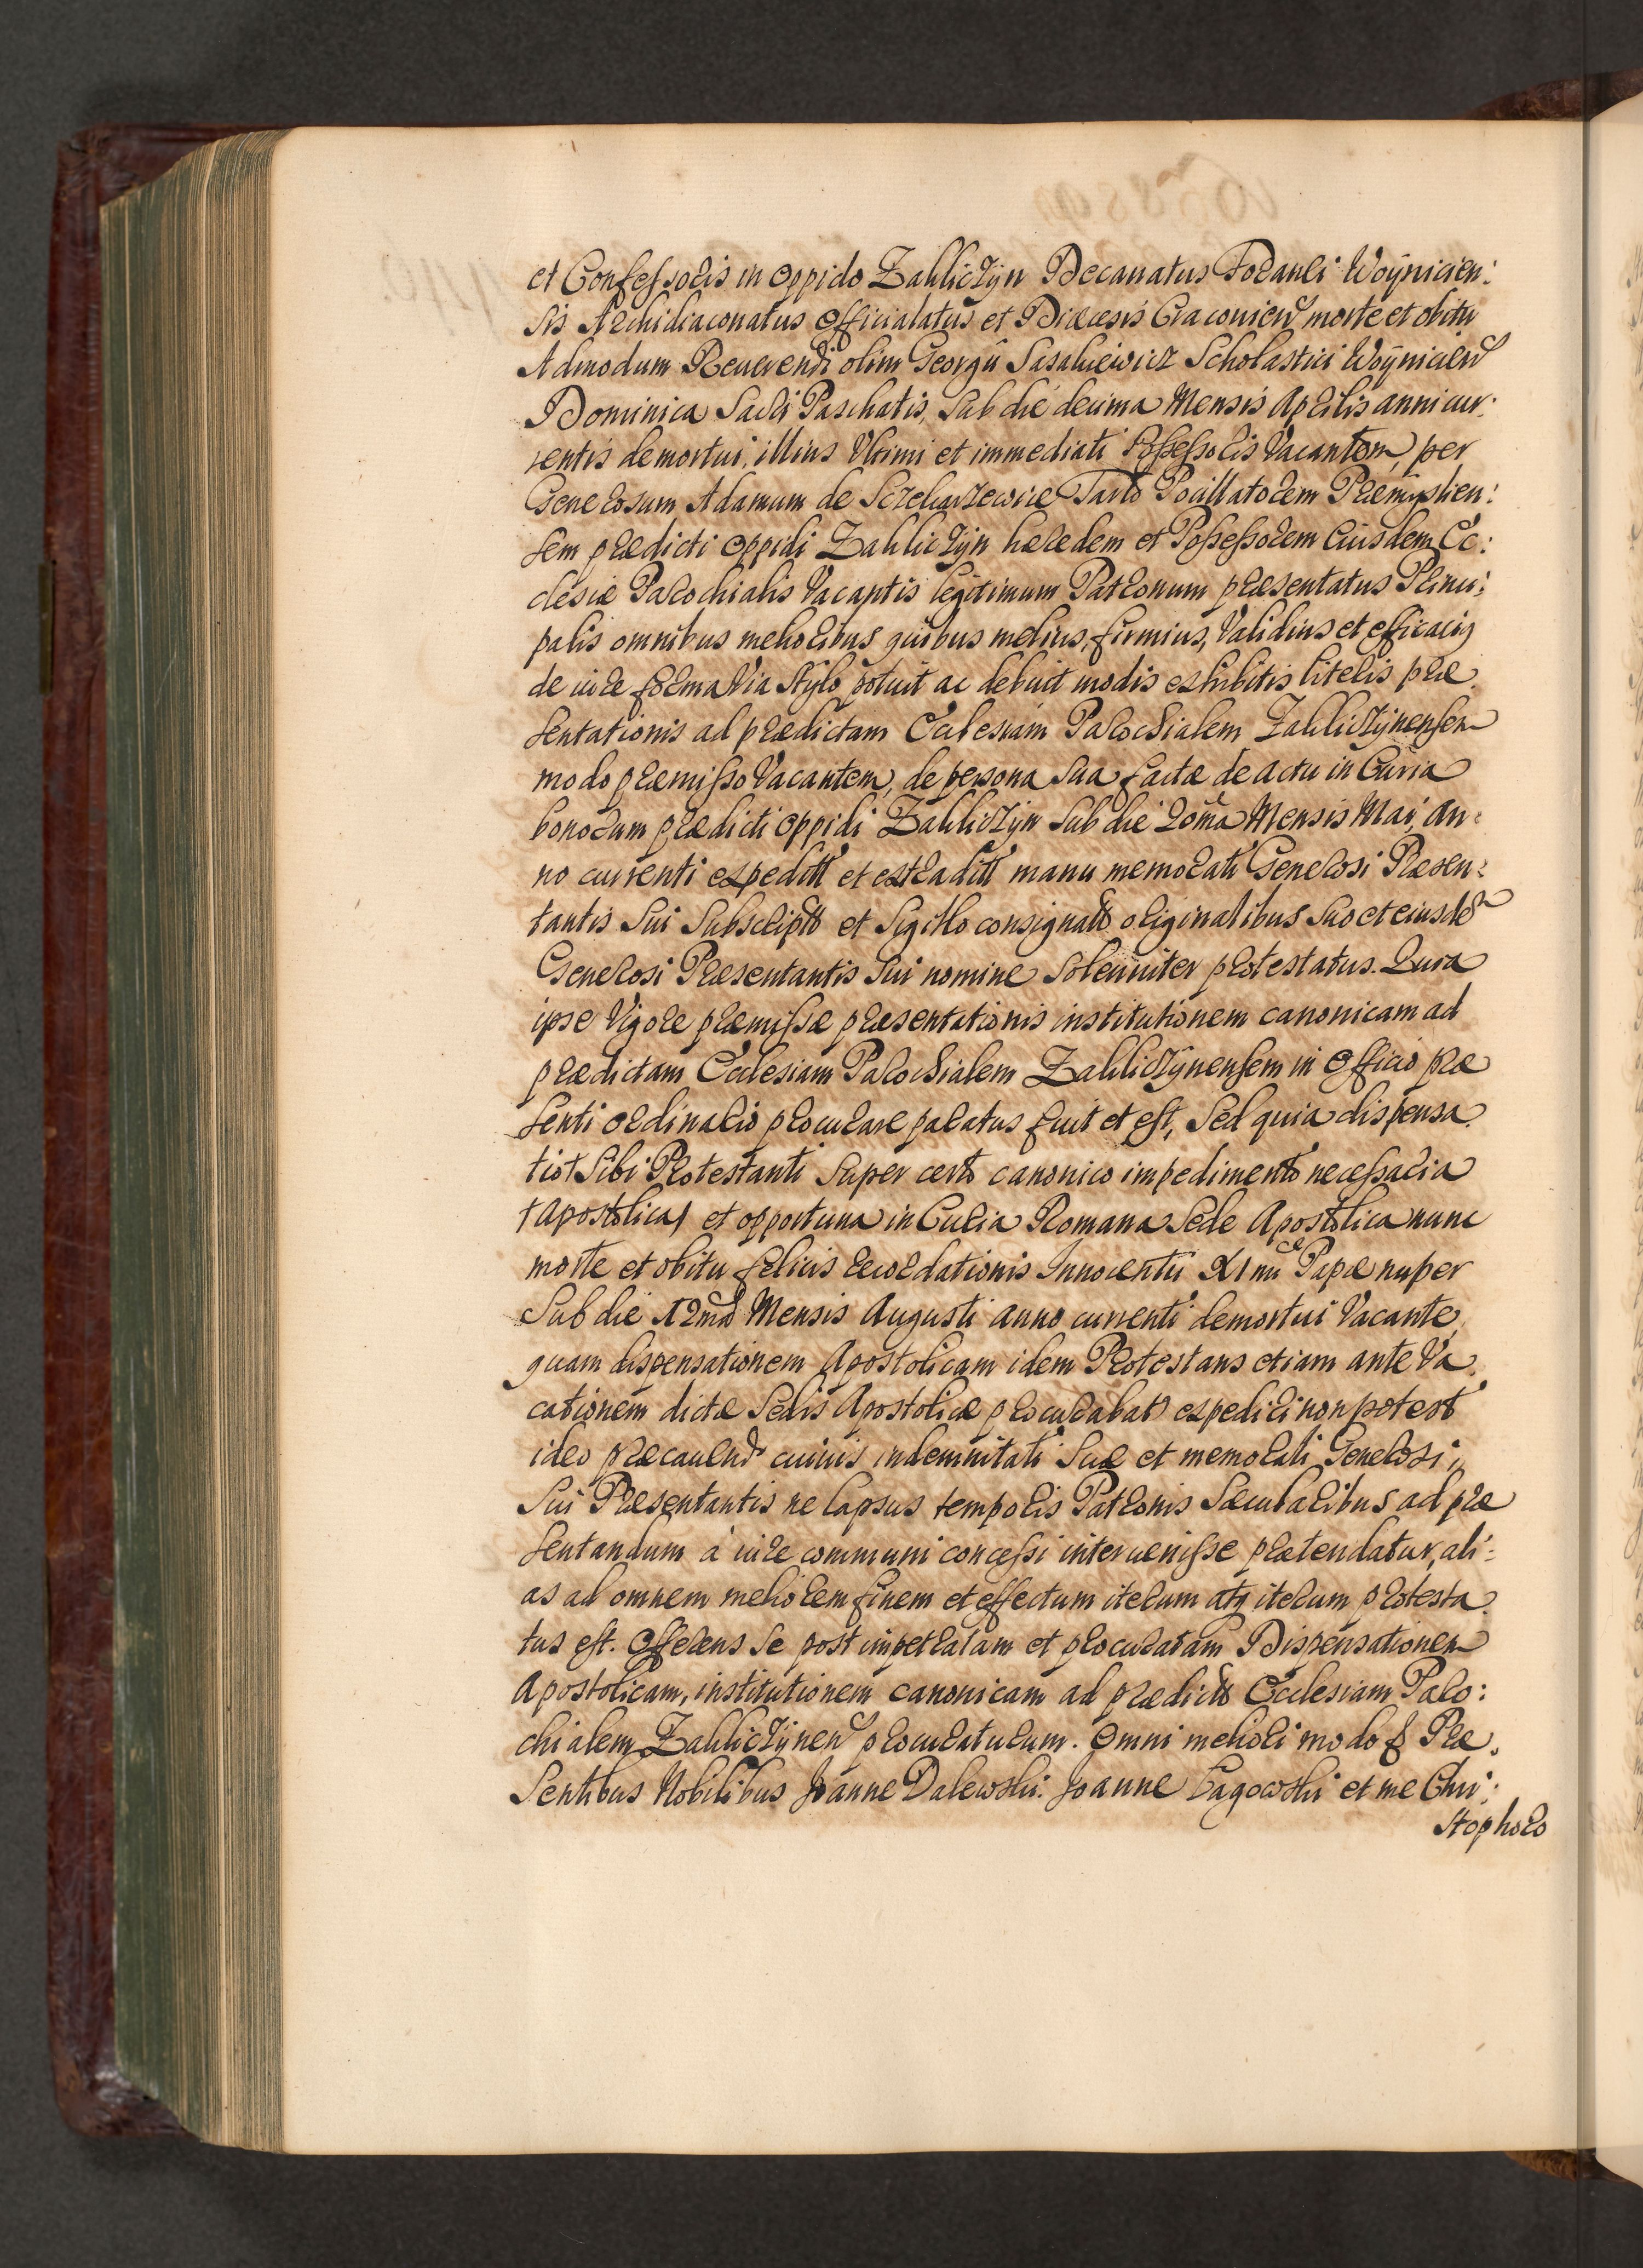 et Confessoris in Oppido Zakliczÿn Decanatus Foranei Woÿnicien:
sis Archidiaconatus Officialatus et Diæcesis Cracovien morte et obitu
Admodum Reuerendi olim Georgii Sasakiewicz Scholastici Woÿnicien
Dominica Sacri Paschatis, Sub die decima Mensis Aprilis anni cur:
rentis demortui, illius Vltimi et immediati Possessoris Vacantem, per
Generosum Adamum de Sczekarzewice Tarło Pocillatorem Præmyslien:
sem prædicti Oppidi Zakliczÿn hæredem et Possessorem Eiusdem Ec:
clesiæ Parochialis Vacantis legitimum Patronum præsentatus Princi:
palis omnibus melioribus quibus melius, firmius, Validius et efficacius
de iure forma Via Stylo potuit ac debuit modis exhibitis literis præ
sentationis ad prædictam Ecclesiam Parochialem Zakliczÿnensem
modo præmisso Vacantem, de persona Sua factæ de actu in Curia
bonorum prædicti Oppidi Zakliczÿn Sub die 20ma Mensis Maii, an:
no currenti expeditt et extraditt manu memorati Generosi Præsen:
tantis Sui Subscriptt et Sigillo consignatt originalibus Suo et eiusdem
Generosi Præsentantis Sui nomine Solenniter protestatus. Quia
ipse Vigore præmissæ præsentationis institutionem canonicam ad
prædictam Ecclesiam Parochialem Zakliczÿnensem in Officio præ
senti ordinario procurare paratus fuit et est, Sed quia dispensa
tio† Sibi Protestanti Super certo canonico impedimento necessaria
†Apostolica/ et opportuna in Curia Romana Sede Apostolica nunc
morte et obitu felicis recordationis Innocentii XI mi Papæ nuper
Sub die 12ma Mensis Augusti anno currenti demortui Vacante,
quam dispensationem Apostolicam idem Protestans etiam ante Va
cationem dictæ Sedis Apostolicæ procurabat expediri non potest
ideo præcauend cuiuis indemnitati Suæ et memorati Generosi
Sui Præsentantis ne lapsus temporis Patronis Sæcularibus ad præ
sentandum à iure communi concessi interuenisse prætendatur, ali:
as ad omnem meliorem finem et effectum iterum atq iterum protesta
tus est. Offerens Se post impetratam et procuratam Dispensationem
Apostolicam, institutionem canonicam ad prædictt Ecclesiam Paro:
chialem Zakliczÿnen procuraturum. Omni meliori modo & Præ
Sentibus Nobilibus Joanne Dalewski. Joanne Łagowski et me Chri:
stophoro